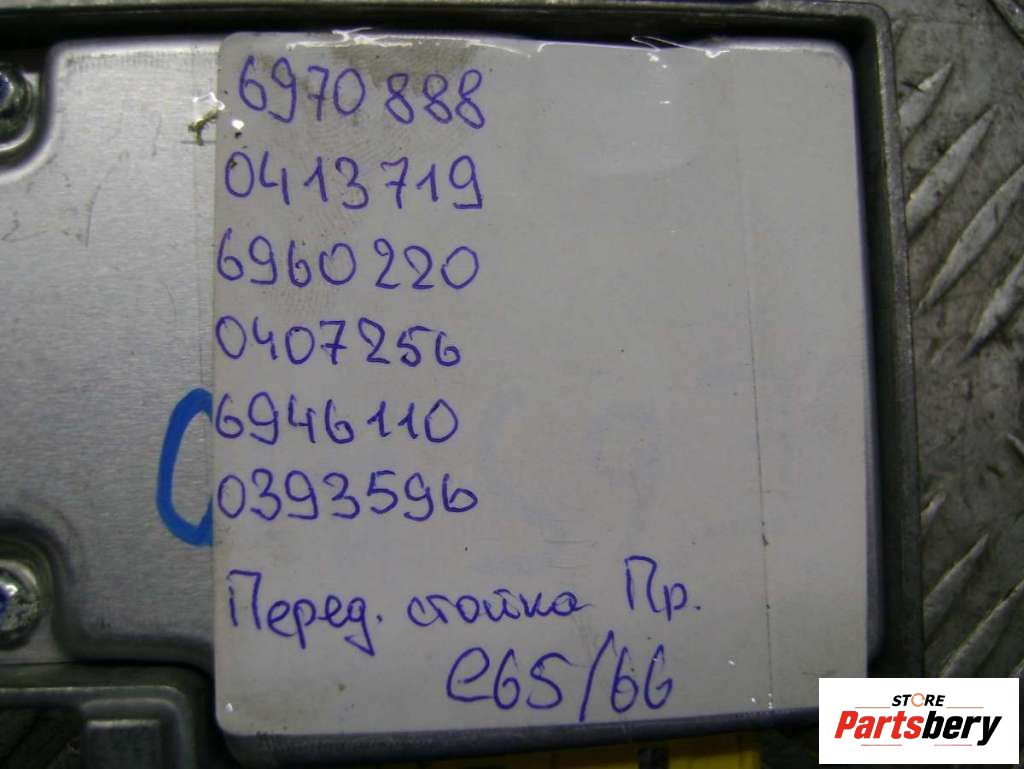 6970888
0413719
6960220
0407256
6946110
0393596
Перед. стойка Пр.
e65/66
STORE
Partsbery